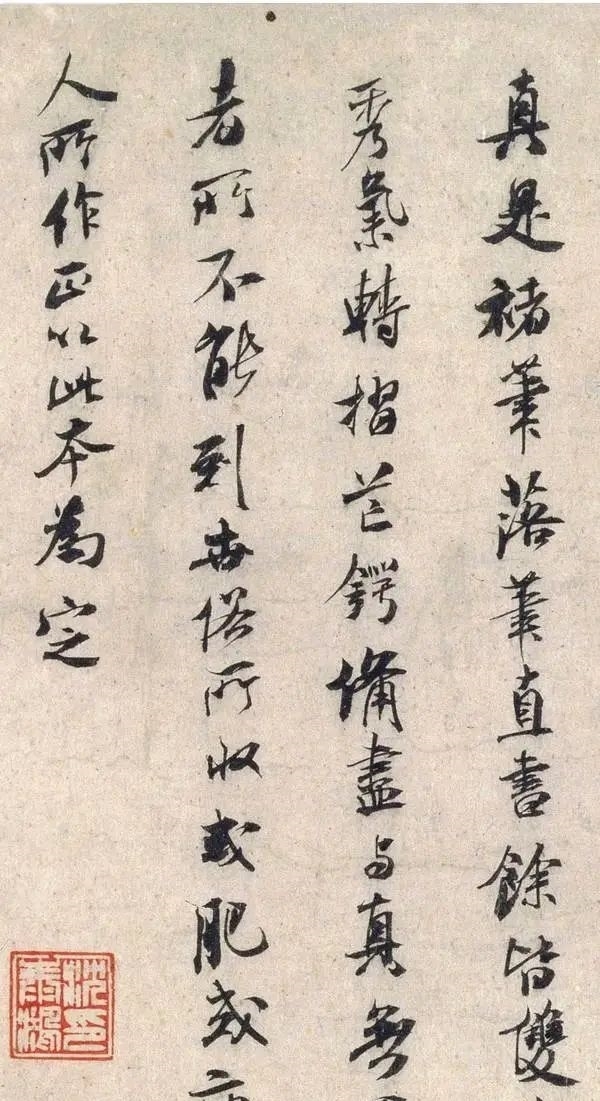 真是褚筆落筆直書餘皆雙
秀氣轉摺芒鍔備盡與真無
者所不能到世俗所收或肥或
人所作正以此本為定